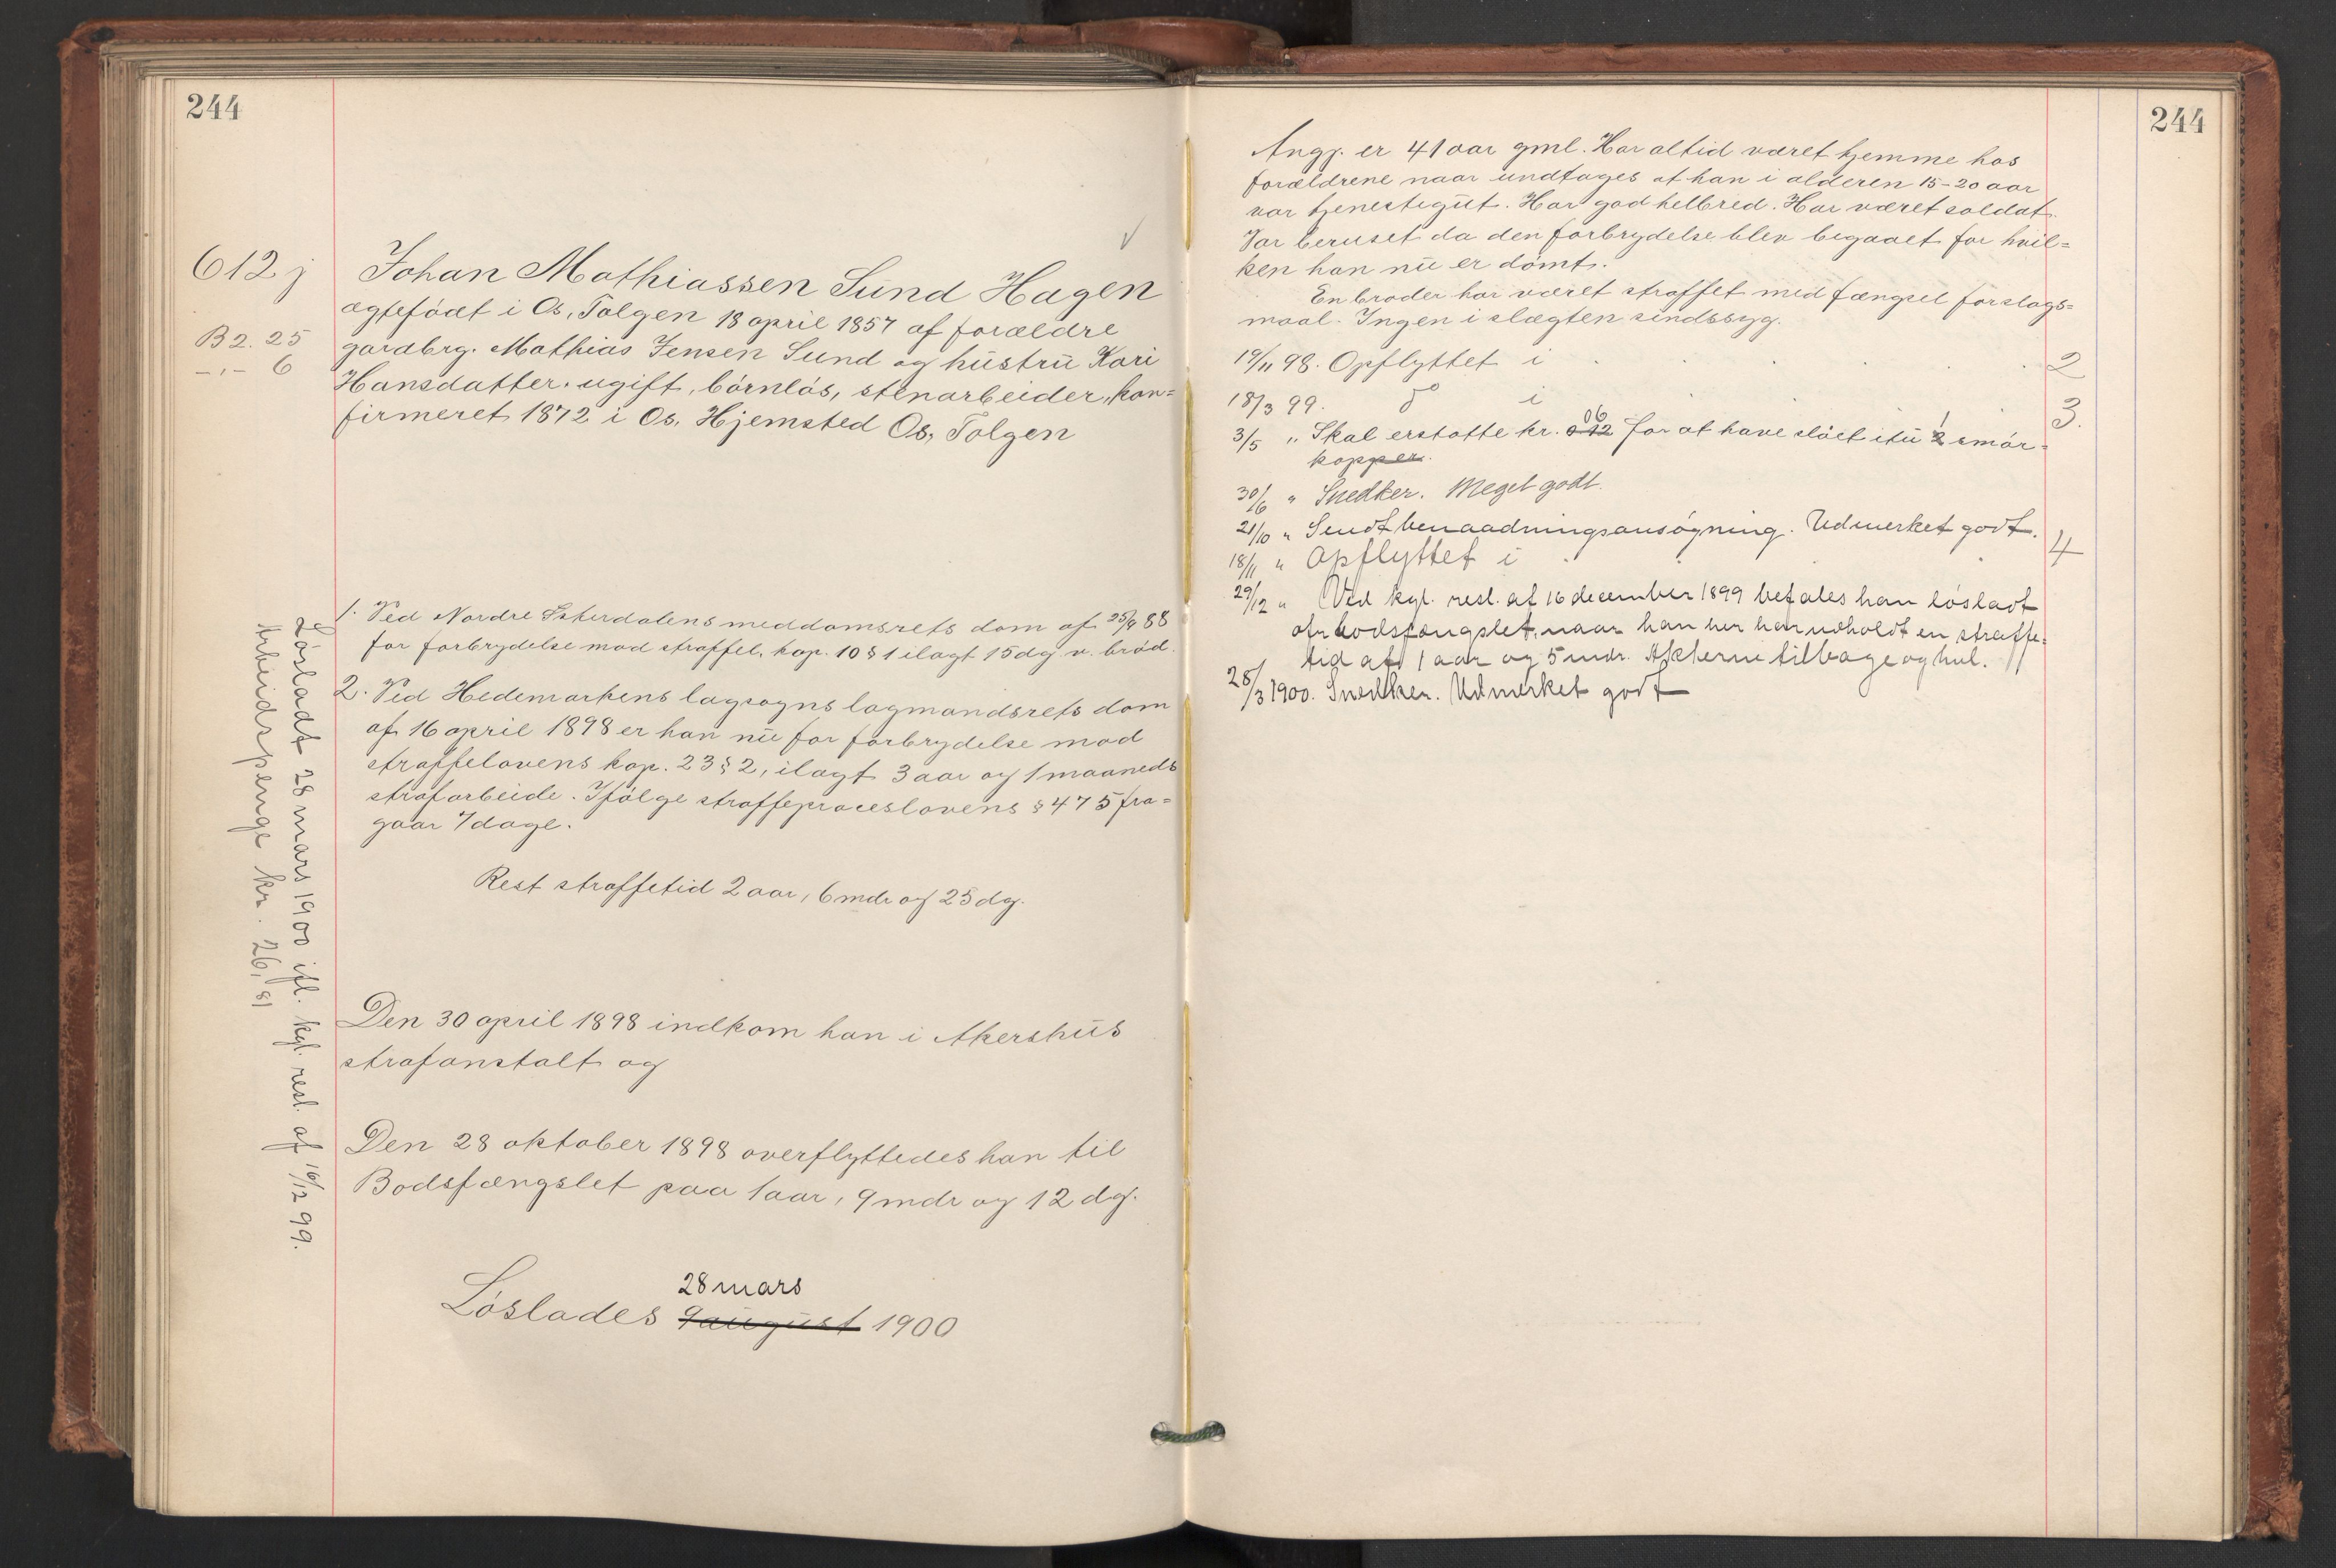 244
612 j
B 2. 25
–"– 6
Johan Mathiassen Sund Hagen
ægtefödt i Os, Tolgen 18 april 1857 af forældre
gardbrg. Mathias Jensen Sund og hüstrü Kari
Hansdatter. ugift, börnlös, stenarbeider, kon=
firmeret 1872 i Os, Hjemsted Os, Tolgen
1. Ved Nordre Österdalens meddomsrets dom af 25/9 88
for forbrydelse mod straffel. kap. 10 § 1 ilagt 15 dg v. bröd.
2. Ved Hedemarkens lagsogns lagmandsrets dom
af 16 april 1898 er han nü for forbrydelse mod
straffelovens kap. 23 § 2, ilagt 3 aar og 1 maaneds
strafarbeide. Ifölge straffeproceslovens § 475 fra=
gaar 7 dage.
Rest straffetid 2 aar, 6 mdr og 25 dg.
Den 30 april 1898 indkom han i Akershüs
strafanstalt og
Den 28 oktober 1898 overflyttedes han til
Bodsfængslet paa 1 aar, 9 mdr og 12 dg.
28 mars
Löslades 9 aügüst 1900
Lösladt 28 mars 1900 ifl. kgl. resl. af 16/12 99.
Arbeidspenge kr. 26,81
244
Angj. er 41 aar gml. Har altid været hjemme hos
forældrene naar undtages at han i alderen 15–20 aar
var tjenestegüt. Har god helbred. Har været soldat.
Var beruset da den forbrydelse blev begaaet for hvil=
ken han nü er dömt.
En broder har været straffet med fængsel för slags=
maal. Ingen i slægten sindssyg.
19/11 98. Opflyttet i 2
18/3 99. do i 3.
3/5 " Skal erstatte kr. 0 12 06 for at have slået itü 2 1 smör=
kopper.
30/6 " Snedker. Meget godt.
21/10 " Sendt benaadningsansögning. Udmerket godt.
18/11 " Opflyttet i 4
29/12 " Ved kgl. resl. af 16 december 1899 befales han lösladt
af bodsfængslet, naar han her har udholdt en straffe=
tid af 1 aar og 5 mdr. Akterne tilbage og hul.
28/3 1900. Snedker. Udmerket godt